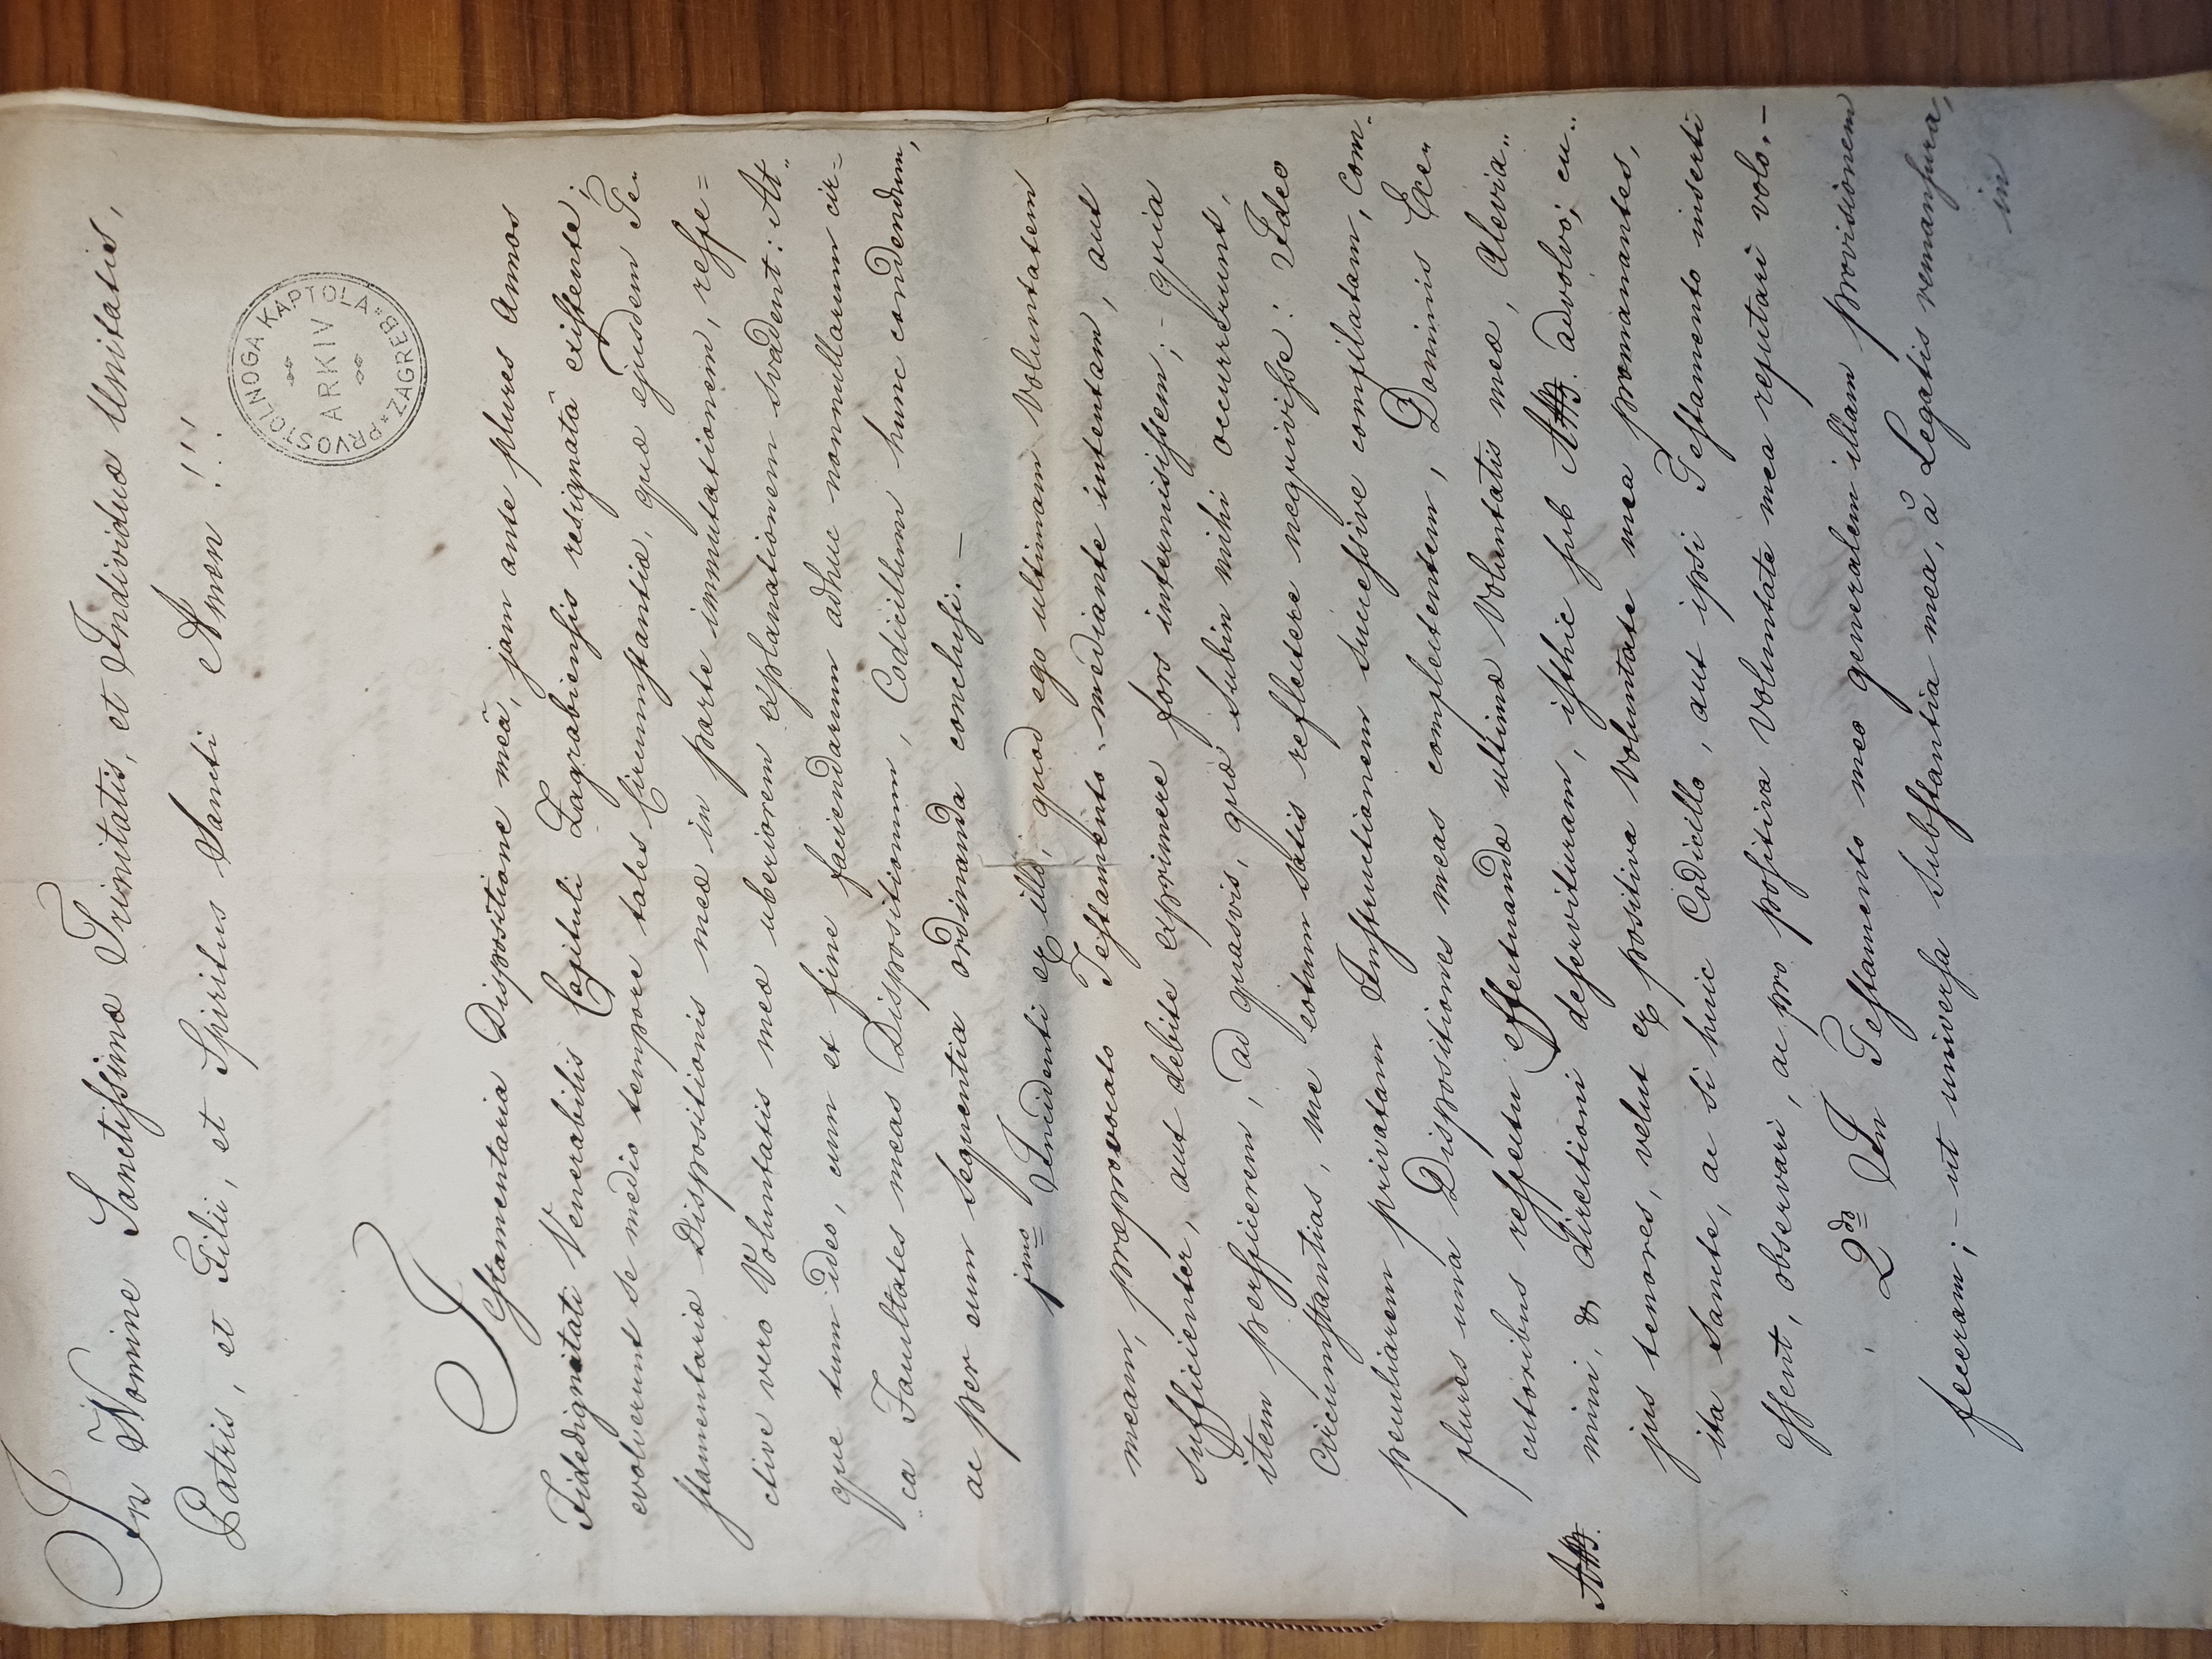 In Nomine Sanctissimæ Trinitatis, et Individuæ Unitatis,
Patris, et Filii, et Spiritus Sancti Amen!!!
PRVOSTOLNOGA KAPTOLA * ZAGREB *
ARKIV
Testamentaria Dispositione meâ, jam ante plures annos
Fidedignitati Venerabilis Capituli Zagrabiensis resignatâ existente,
evolverunt se medio tempore tales Circumstantiæ, quæ ejusdem Te„
stamentariæ Dispositionis meæ in parte immutationem, respe=
ctive vero Voluntatis meæ uberiorem explanationem svadent: At„
que tum ideo, cum et fine faciendarum adhuc nonnullarum cir=
„ca Facultates meas Dispositionum, Codicillum hunc condendum,
ac per eum sequentia ordinanda conclusi. —
1mo Incidenti ex illo, quod ego ultimam Voluntatem
meam, præprovocato Testamento mediante intentam, aut
sufficienter, aut debite exprimere fors intermisissem; - quia
item perspicerem, ad quasvis, quæ subin mihi occurrerunt,
Circumstantias, me eotum satis reflectere nequivisse: Ideo
peculiarem privatam Instructionem successive compilatam, com„
plures una Dispositiones meas complectentem, Dominis Exe„
cutoribus respectu effectuandæ ultimæ Voluntatis meæ, Alevia„
mini, & Directioni deservituram, isthic sub A/B. advolvo; cu„
A/B.
jus tenores, velut ex positiva Voluntate mea promanantes,
ita sancte, ac si huic Codicillo, aut ipsi Testamento inserti
essent, observari, ac pro positiva Voluntate mea reputari volo. —
2do In Testamento meo generalem illam provisionem
feceram; - ut universa Substantia mea, à Legatis remansura,
in